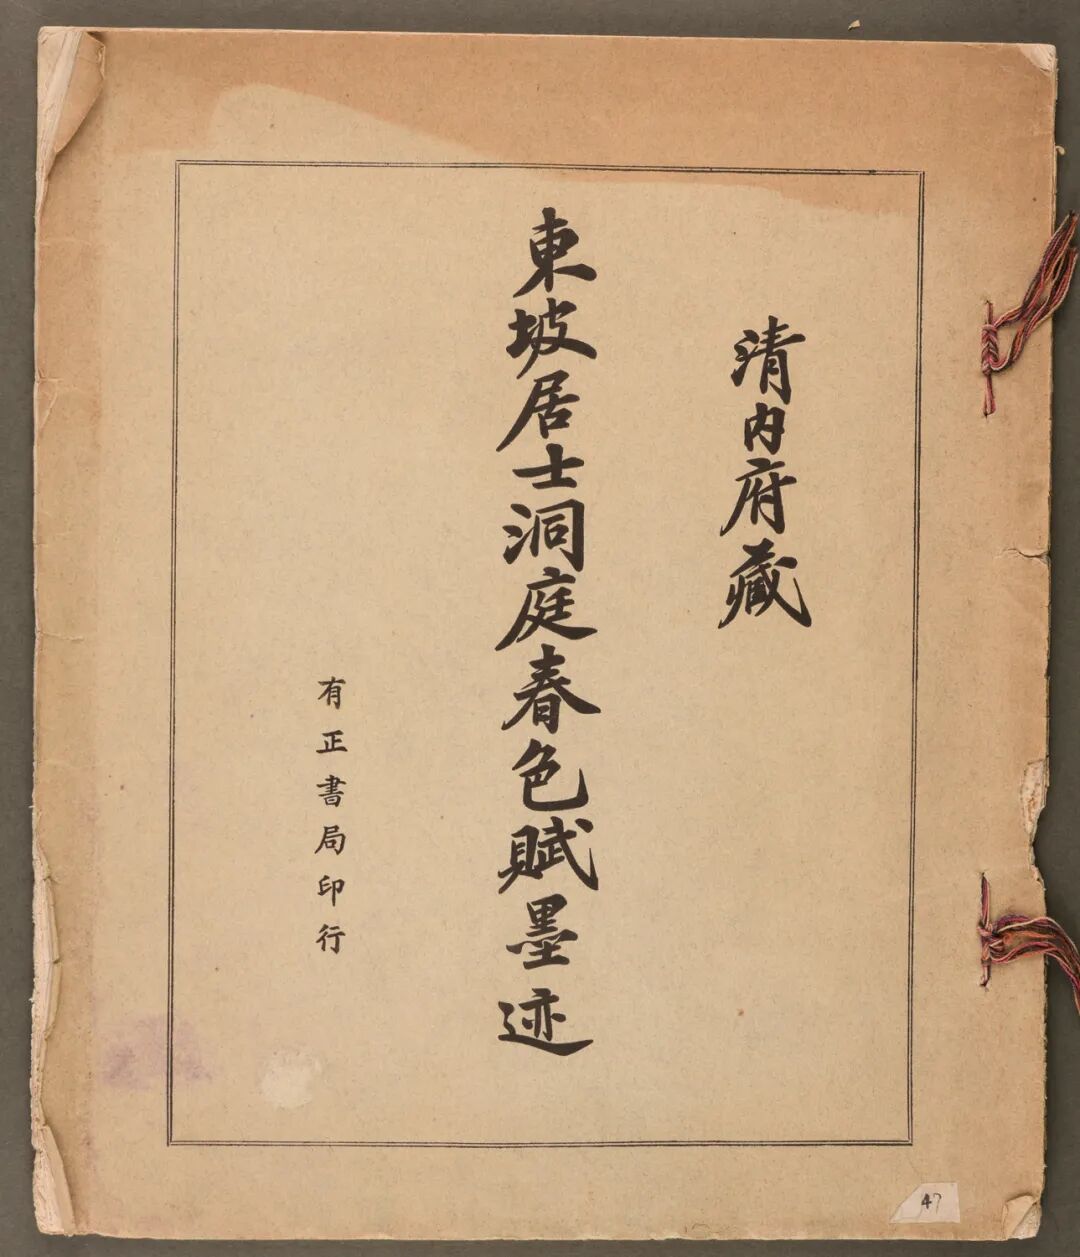 清内府藏
東坡居士洞庭春色賦墨迹
有正書局印行
47